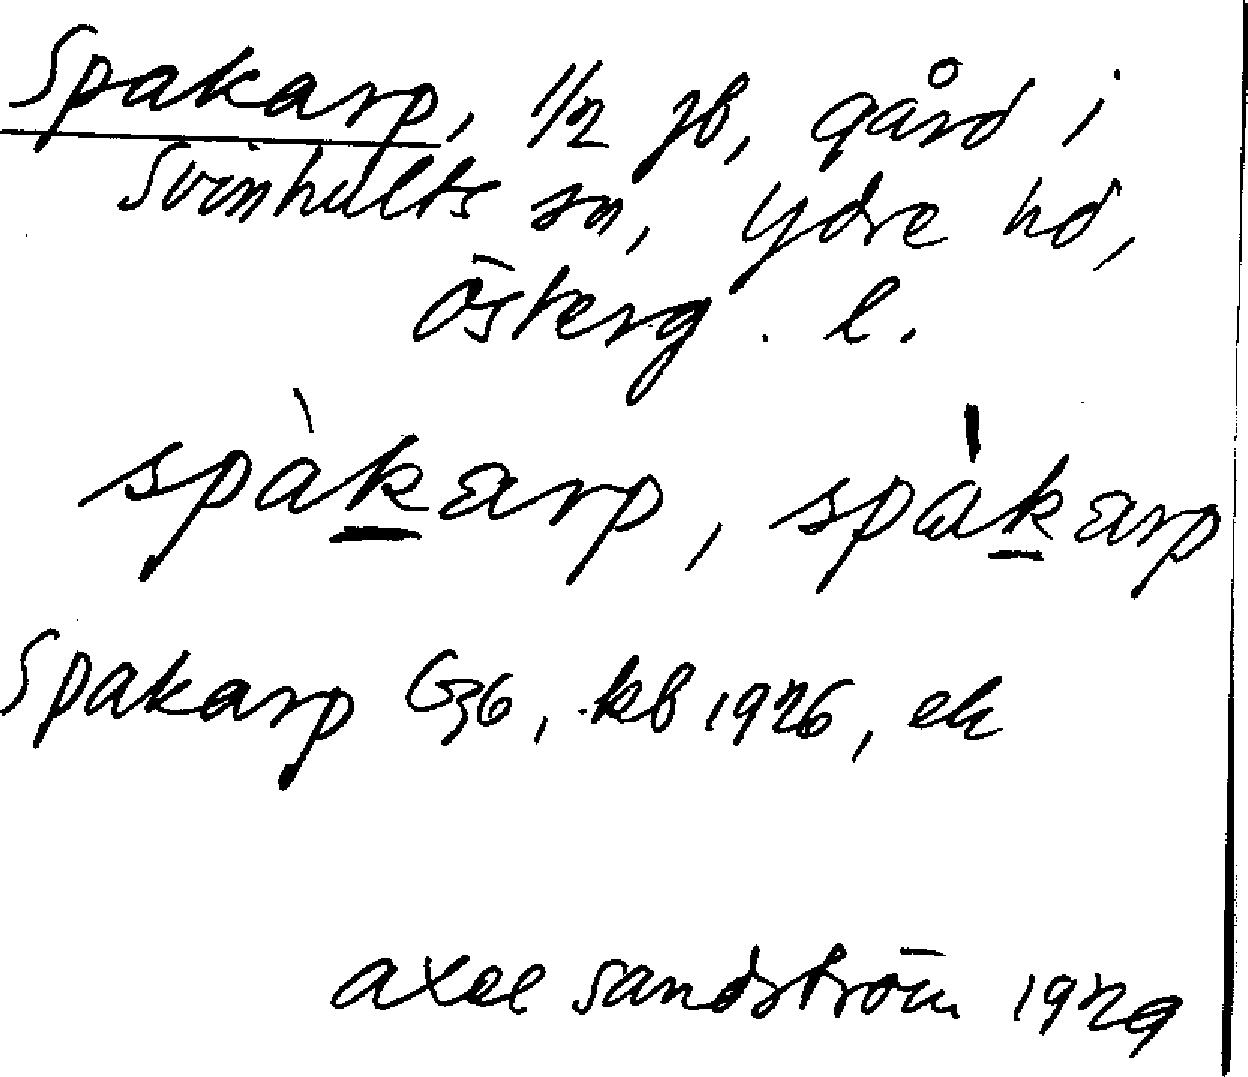 Spakarp, 1/2 jb, gård i
Svinhults sn, Ydre hd,
Österg. l.
spàkarp, spàkarp
Spakarp G36, kb 1926, ek
Axel Sandström 1929